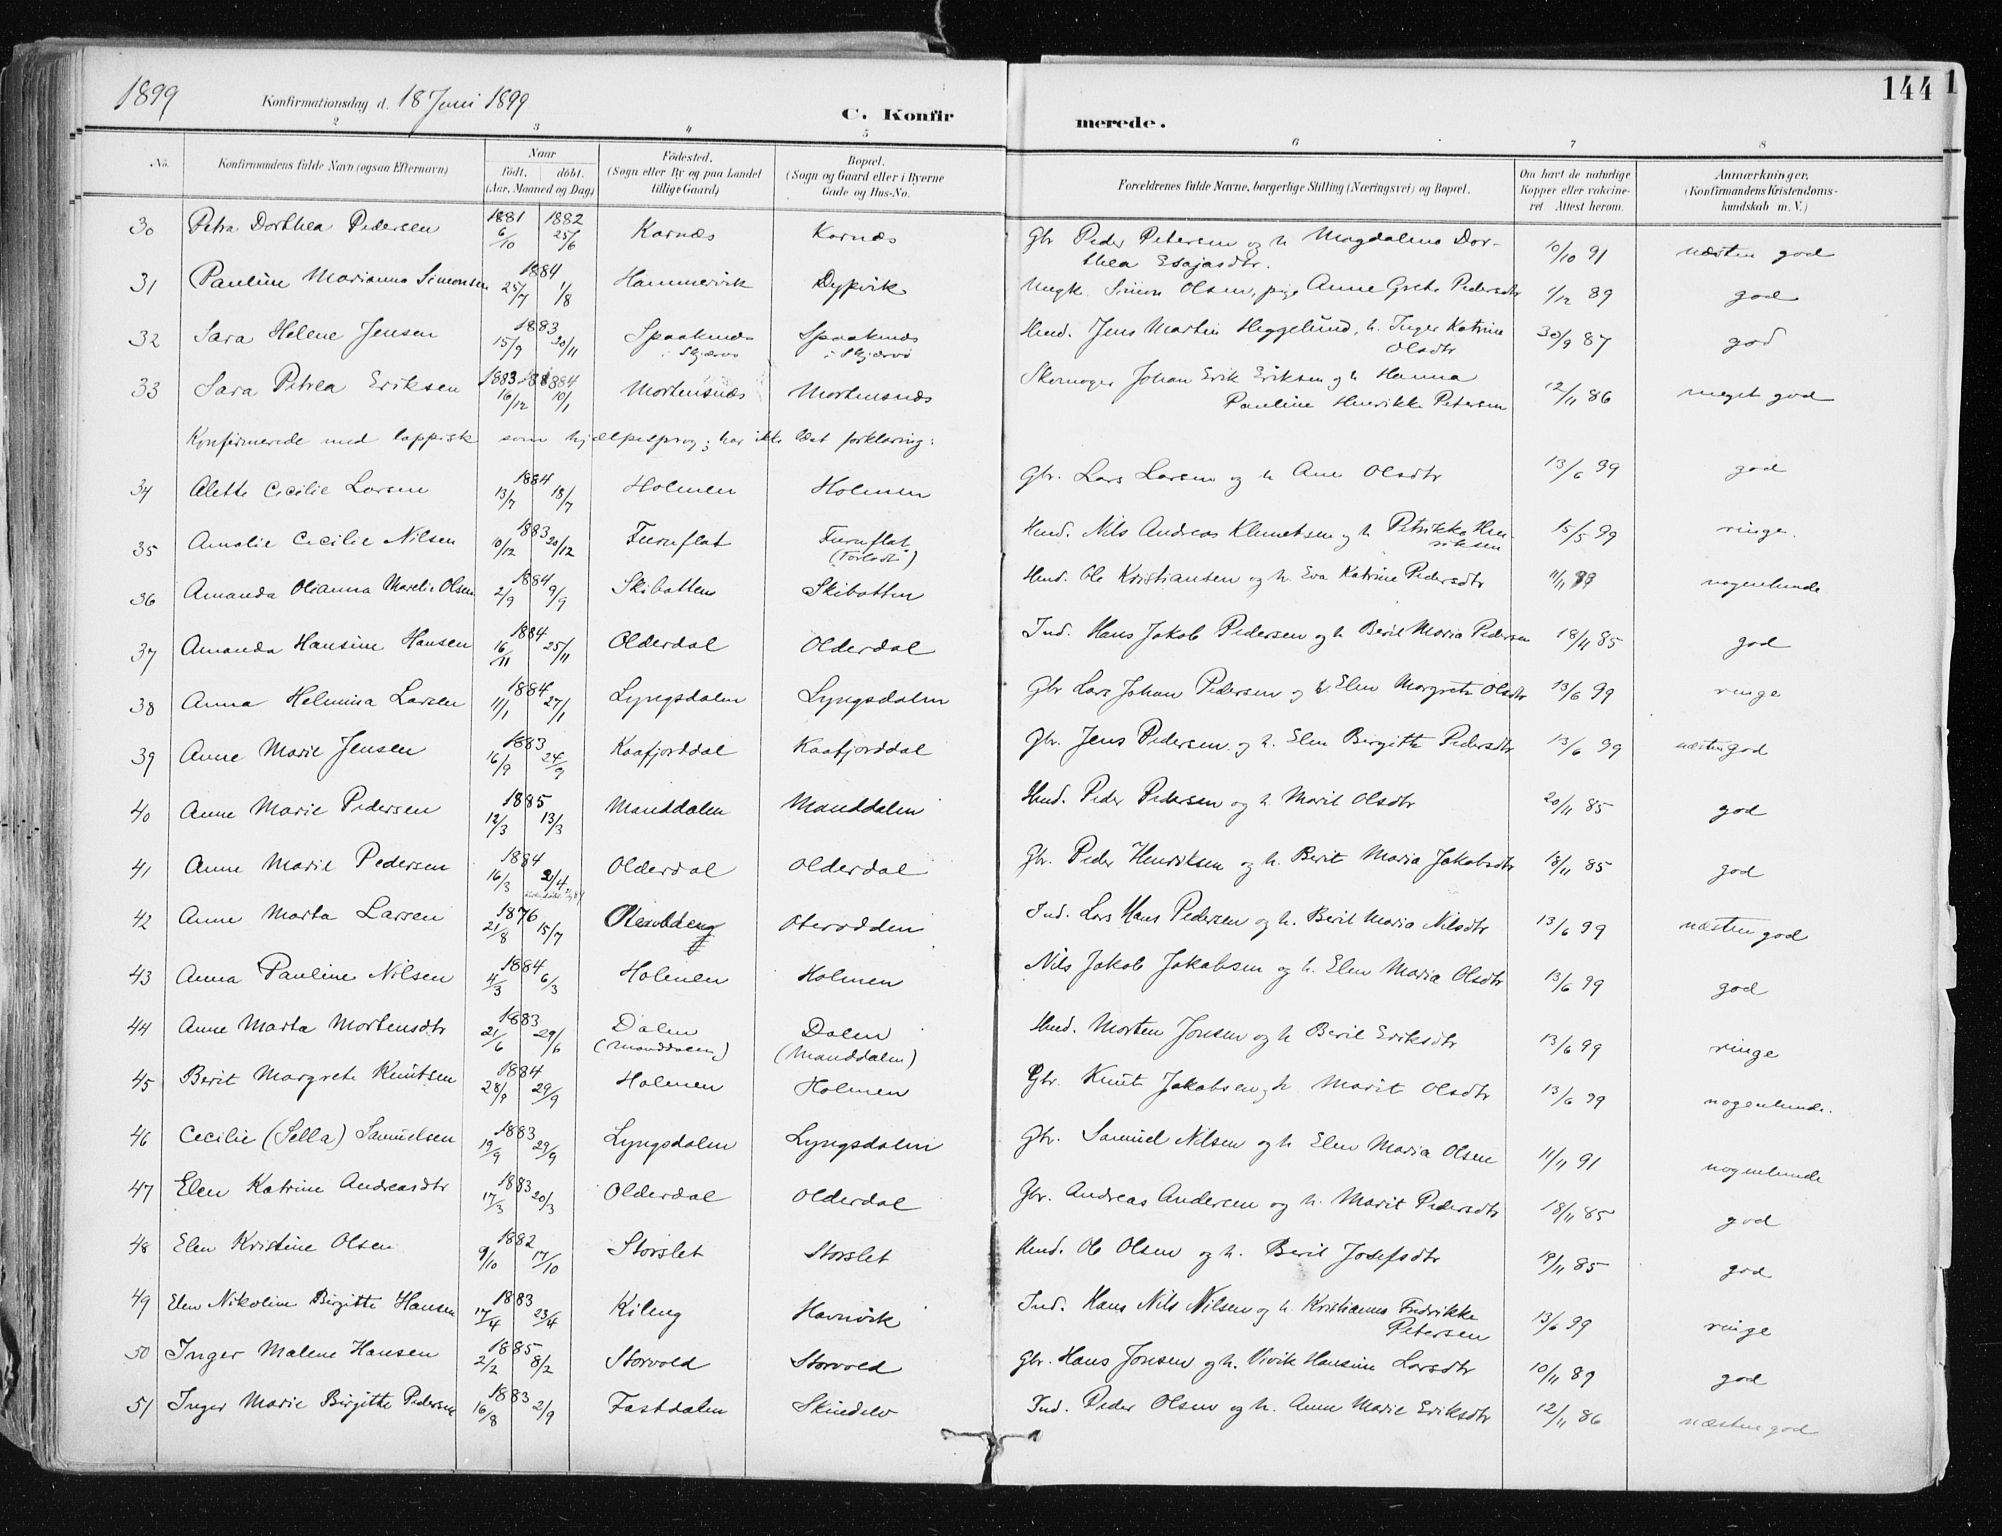 1899 Konfirmationsdag d. 18 Juni 1899 C. Konfirmerede. 144
2 3 4 5 6 7 8
No. Konfirmandens fulde Navn (ogsaa Efternavn) Naar født. døbt. (Aar, Maaned og Dag) Fødested. (Sogn eller By og paa Landet tillige Gaard) Bopæl. (Sogn og Gaard eller i Byerne Gade og Hus-No. Forældrenes fulde Navne, borgerlige Stilling (Næringsvei) og Bopæl. Om havt de naturlige Kopper eller vakcineret Attest herom. Anmærkninger. (Konfirmandens Kristendomskundskab m. V.)
30 Petra Dorthea Pedersen 1881 6/10 1882 25/6 Karnæs Karnæs Gbr Peder Petersen og h. Magdalena Dorthea Esajasdtr. 10/10 91 næsten god
31 Pauline Marianna Simonsen 1884 25/7 1/8 Hammervik Dypvik Ungk. Simon Olsen, pige Anne Grete Pedersdtr 1/12 89 god
32 Sara Helene Jensen 1883 15/9 20/11 Spaaknæs i Skjærvø Spaaknæs i Skjærvø Hmd. Jens Martin Heggelund, h. Inger Katrine Olsdtr 30/9 87 god
33 Sara Petrea Eriksen 1883 16/12 1884 10/1 Mortensnæs Mortensnæs Skomager Johan Erik Eriksen og h Hanna Pauline Henrikke Petersen 12/11 86 meget god
Konfirmerede med lappisk som hjælpesprog; har ikke læst forklaring:
34 Alette Cecilie Larsen 1884 13/7 18/7 Holmen Holmen Gbr. Lars Larsen og h Ane Olsdtr 13/6 99 god
35 Amalie Cecilie Nilsen 1883 10/12 20/12 Furuflat Furuflat (Forladt) Hmd. Nils Andreas Klemetsen og h. Petrikke Henriksen 15/5 99 ringe.
36 Amanda Olianna Marelie Olsen 1884 2/9 9/9 Skibotten Skibotten Hmd. Ole Kristiansen og h. Eva Katrine Pedersdtr 11/11 nogenlunde
37 Amanda Hansine Hansen 1884 16/11 25/11 Olderdal Olderdal Ind. Hans Jakob Pedersen og h Berit Maria Pedersen 18/11 85 god
38 Anna Helmina Larsen 1884 11/1 27/1 Lyngsdalen Lyngsdalen Gbr Lars Johan Pedersen og h Elen Margrete Olsdtr 13/6 99 ringe
39 Anne Marie Jensen 1883 16/9 24/9 Kaafjorddal Kaafjorddal Gbr. Jens Pedersen og h. Elen Birgitte Pedersdtr 13/6 99 næsten god
40 Anne Marie Pedersen 1885 12/3 13/3 Manddalen Manddalen Hmd. Peder Pedersen og h. Marit Olsdtr 20/11 85 god
41 Anne Marie Pedersen 1884 16/3 2/4 Olderdal Olderdal Gbr. Peder Henriksen og h. Berit Maria Jakobsdtr 18/11 85 god
42 Anne Marta Larsen 1876 21/8 15/7 Oterodden Ind. Lars Hans Pedersen og h. Berit Maria Nilsdtr 13/6 99 næsten god
43 Anna Pauline Nilsen 1884 4/3 6/3 Holmen Holmen Nils Jakob Jakobsen og h. Elen Maria Olsdtr 13/6 99 god
44 Anne Marta Mortensdtr 1883 21/6 29/6 Dalen (Manddalen) Dalen (Manddalen) Hmd. Morten Jonsen og h Berit Eriksdtr 13/6 99 ringe
45 Berit Margrete Knutsen 1884 28/9 29/9 Holmen Holmen Gbr. Knut Jakobsen og h. Marit Olsdtr 13/6 99 nogenlunde.
46 Cecilie (Sella) Samuelsen 1883 19/9 29/9 Lyngsdalen Lyngsdalen Gbr. Samuel Nilsen og h Elen Maria Olsen 11/11 91 nogenlunde
47 Elen Katrine Andreasdtr 1883 17/3 20/3 Olderdal Olderdal Gbr. Andreas Andersen og h. Marit Pedersdtr 18/11 85 god
48 Elen Kristine Olsen 1882 9/10 17/10 Storslet Storslet Hmd. Ole Olsen og h. Berit Josefsdtr 19/11 85 god
49 Elen Nikoline Birgitte Hansen 1883 17/4 23/4 Kileng Havnvik Ind. Hans Nils Nilsen og h. Kristianna Fredrikke Petersen 13/6 99 ringe
50 Inger Malene Hansen 1885 2/2 8/2 Storvold Storvold Gbr. Hans Jonsen og h. Vivik Hansine Larsdtr 10/11 89 god
51 Inger Marie Birgitte Pedersen 1883 16/8 2/9 Fastdalen Skindelv Ind. Peder Olsen og h. Anne Marie Eriksdtr 12/11 86 næsten god